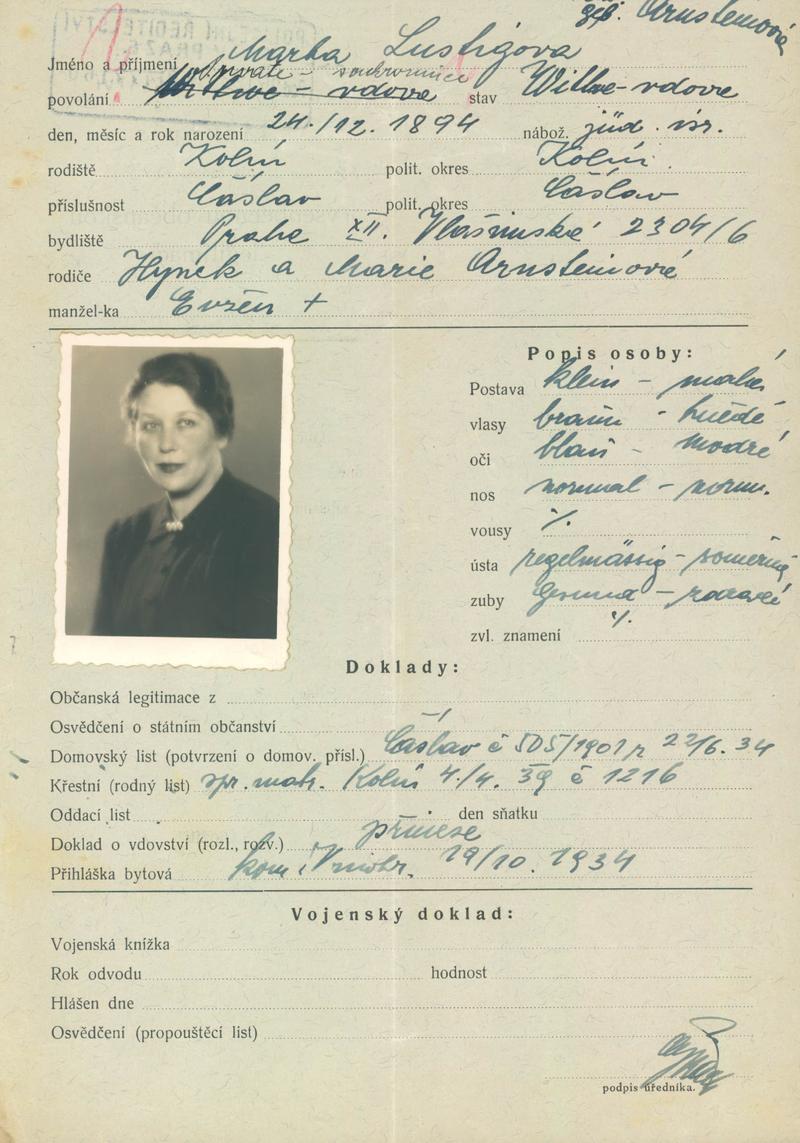 geb. Arnsteinová
Jméno a příjmení Marta Lustigová
Private – soukromnice
povolání Witwe – vdova stav Witwe – vdova
den, měsíc a rok narození 24./12. 1894 nábož. jüd. isr.
rodiště Kolín polit. okres Kolín
příslušnost Čáslav polit. okres Čáslav
bydliště Praha XII. Vlašimská 2304/6
rodiče Hynek a Marie Arnsteinové
manžel-ka Evžen +
Popis osoby:
Postava klein – malá
vlasy braun – hnědé
oči blau – modré
nos normal – norm.
vousy ./.
ústa regelmässig – souměrná
zuby Gesund – zdravé
zvl. znamení ./.
Doklady:
Občanská legitimace z
Osvědčení o státním občanství –/
Domovský list (potvrzení o domov. přísl.) Čáslav č 505/1901 22/6. 34
Křestní (rodný list) Kolín 4./4. 39 č 1216
Oddací list den sňatku
Doklad o vdovství (rozl., rozv.) přinese
Přihláška bytová kom. 19/10. 1934
Vojenský doklad:
Vojenská knížka
Rok odvodu hodnost
Hlášen dne
Osvědčení (propouštěcí list)
podpis úředníka.